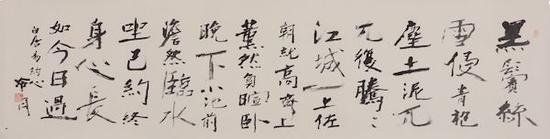 黑鬢絲
雪侵青袍
塵土泥兀
兀復騰々
江城一上佐
朝就高齋上
薰然負暄卧
晚下小池前
澹然臨水
坐已約終
身心長
如今日過
白居易約心